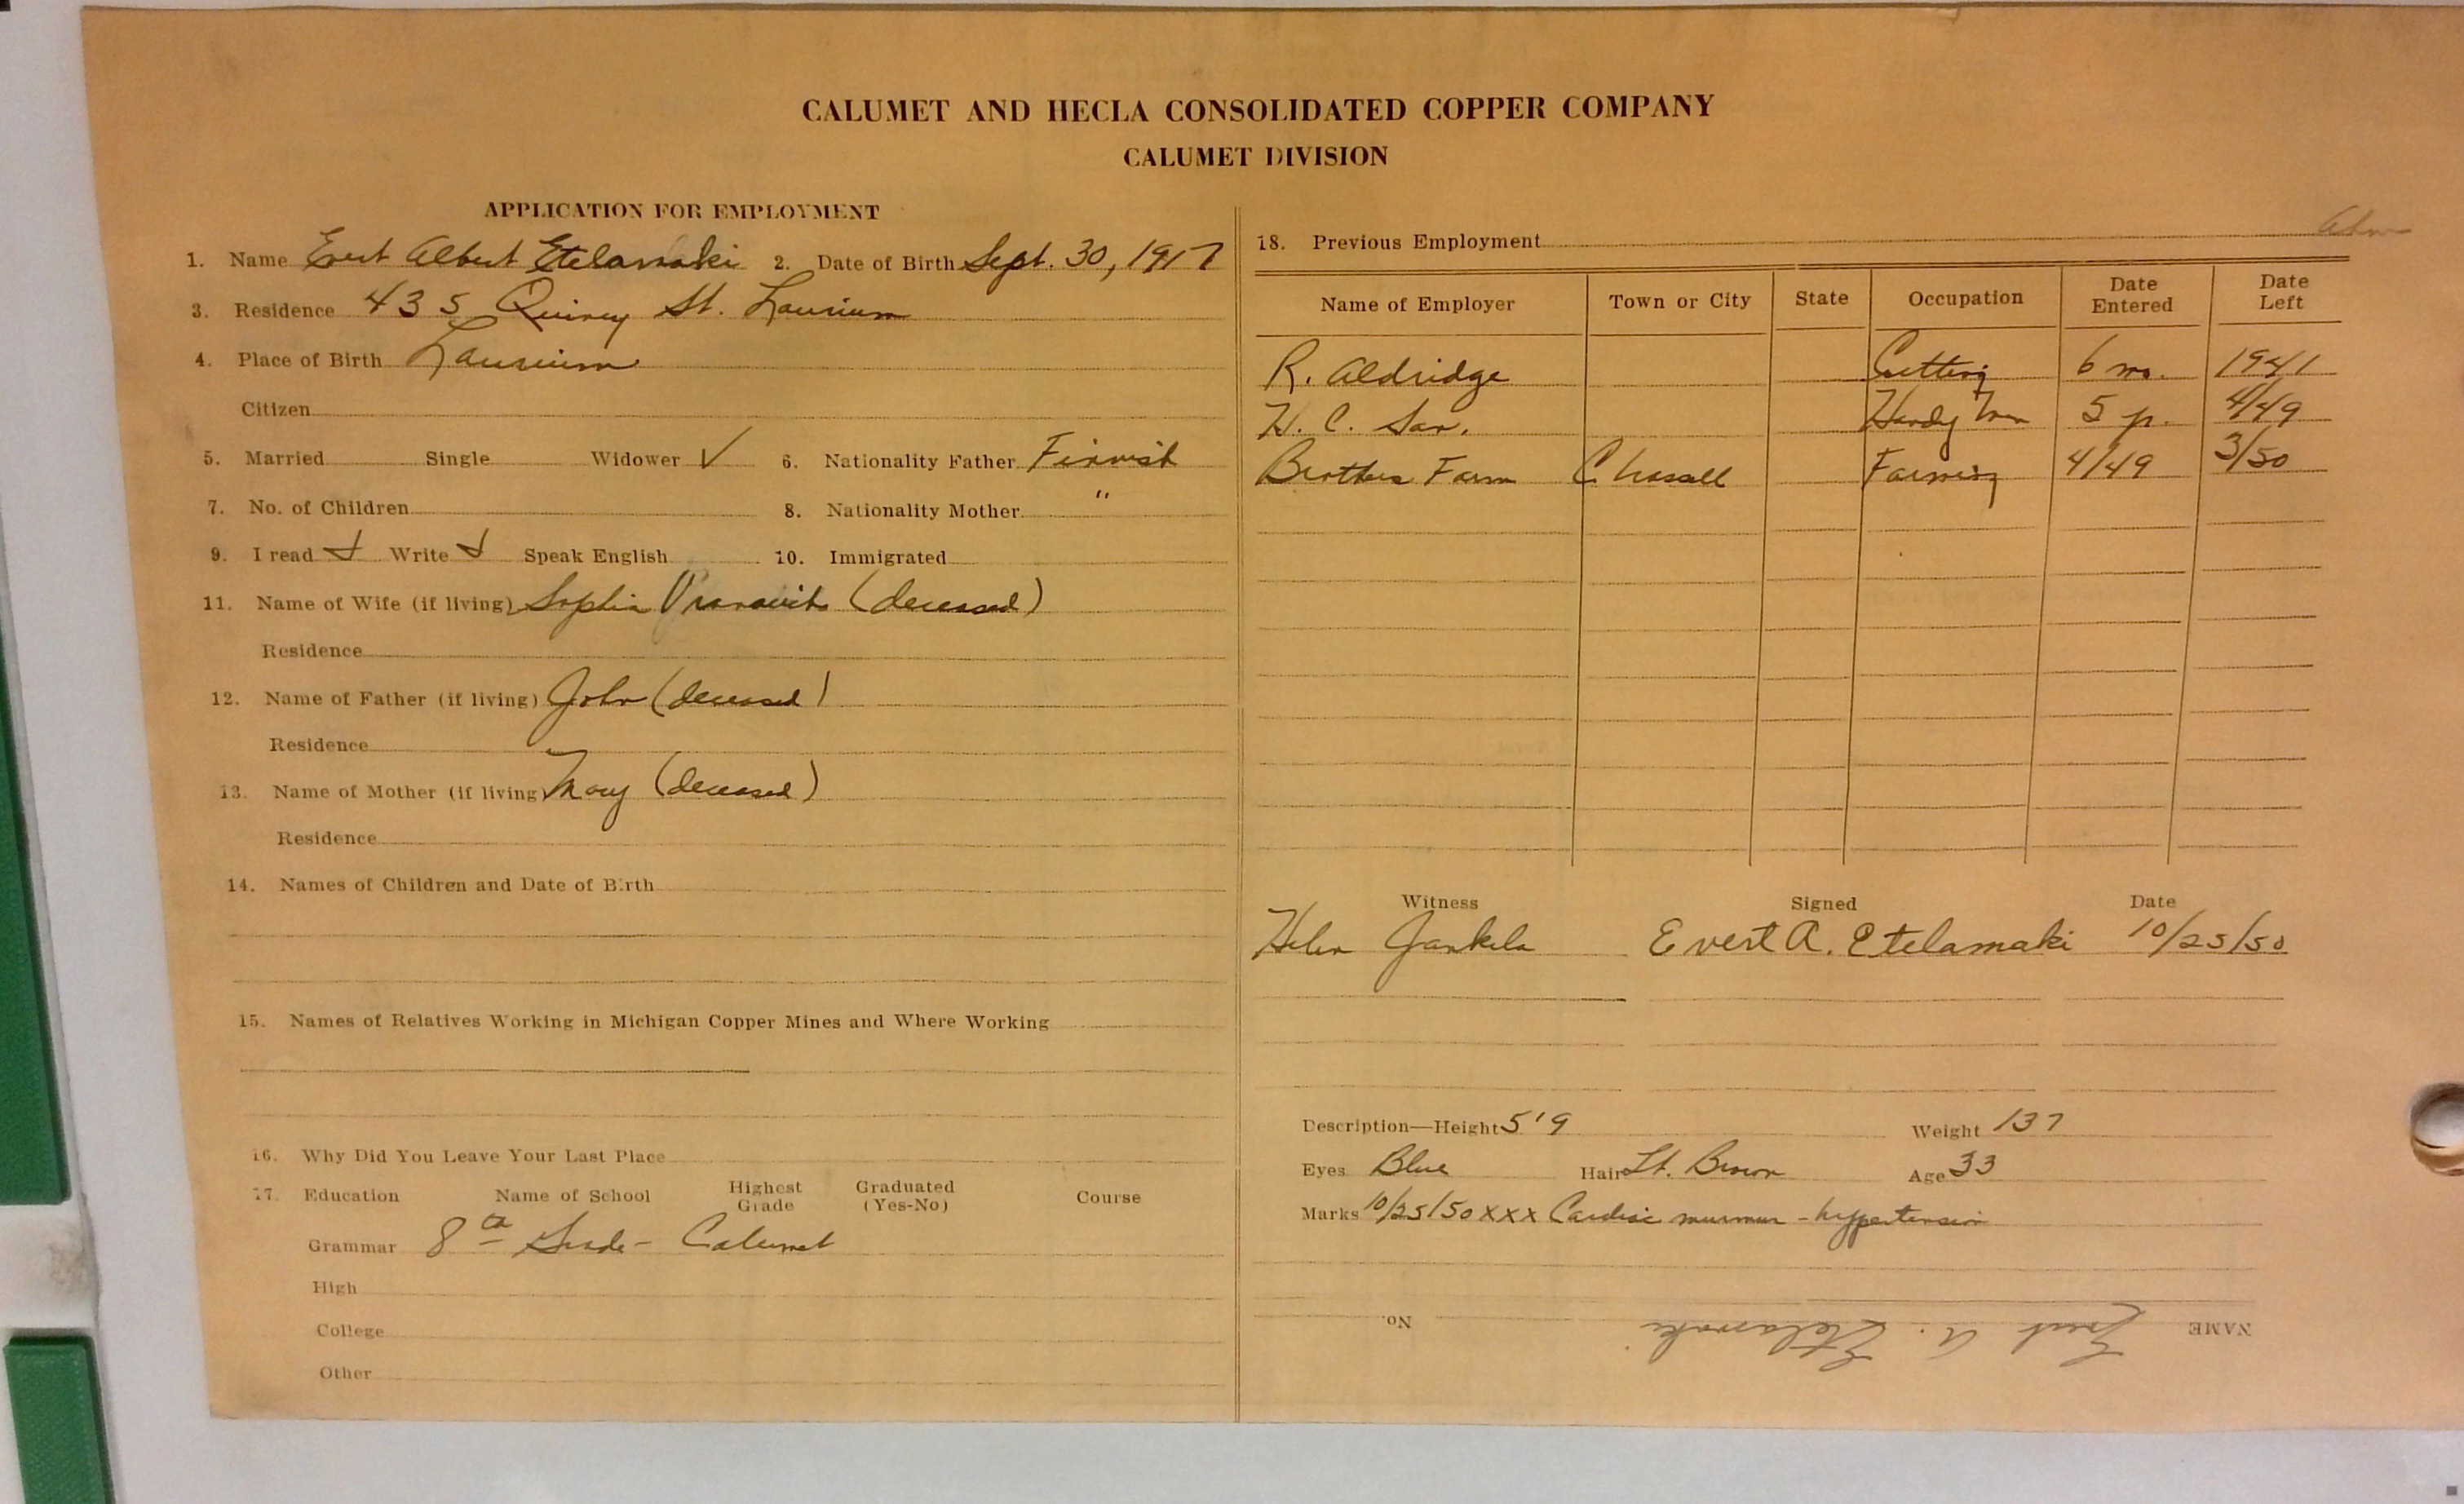 CALUMET AND HECLA CONSOLIDATED COPPER COMPANY
CALUMET DIVISION
APPLICATION FOR EMPLOYMENT
1. Name Evert Albert Etelamaki 2. Date of Birth Sept. 30, 1917
3. Residence 435 Quincy St. Laurium
4. Place of Birth Laurium
Citizen
5. Married Single Widower ✓ 6. Nationality Father Finnish
7. No. of Children 8. Nationality Mother "
9. I read ✓ Write ✓ Speak English 10. Immigrated
11. Name of Wife (if living) Sophia (deceased)
Residence
12. Name of Father (if living) John (deceased)
Residence
13. Name of Mother (if living) Mary (deceased)
Residence
14. Names of Children and Date of Birth
15. Names of Relatives Working in Michigan Copper Mines and Where Working
16. Why Did You Leave Your Last Place
17. Education Name of School Highest Grade Graduated (Yes-No) Course
Grammar 8th Grade - Calumet
High
College
Other
18. Previous Employment
Name of Employer Town or City State Occupation Date Entered Date Left
R. Aldridge Cutting 6 mo. 1941
H. C. San. Handy Man 5 yr. 4/49
Brothers Farm Chassell Farming 4/49 3/50
Witness Signed Date
Helen Jankela Evert A. Etelamaki 10/25/50
Description—Height 5'9 Weight 137
Eyes Blue Hair Lt. Brown Age 33
Marks 10/25/50 xxx Cardiac murmur - hypertension
NAME Evert A. Etelamaki No.